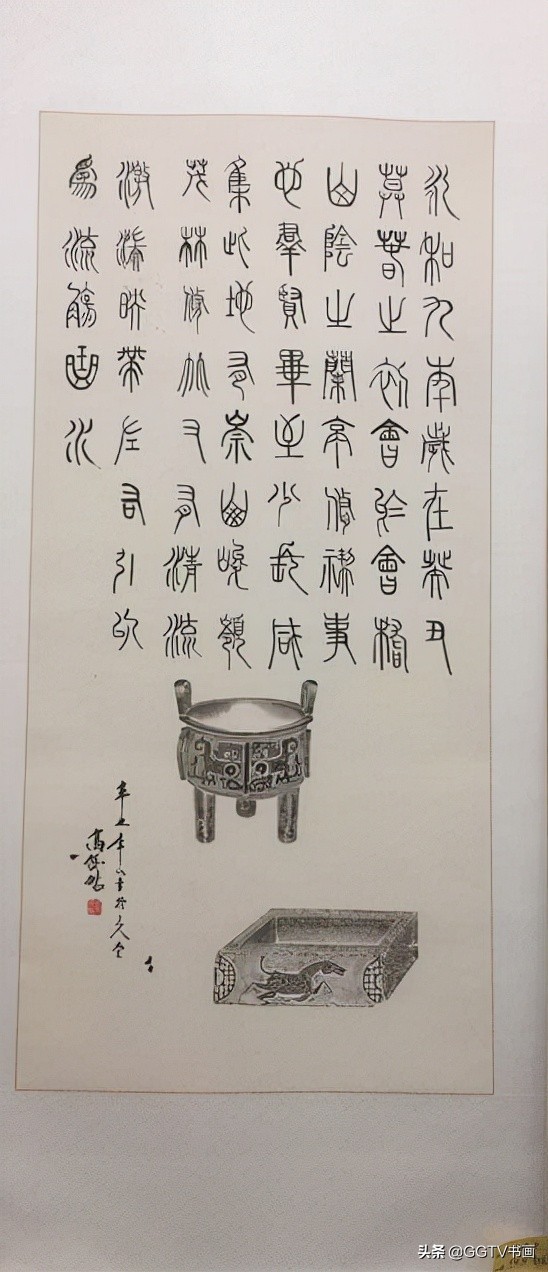 永和九年歲在癸丑
莫春之初會於會稽
山陰之蘭亭脩禊事
也羣賢畢至少長咸
集此地有崇山峻嶺
茂林脩竹又有清流
激湍映帶左右引以
為流觴曲水
辛丑年
头条 @GGTV书画